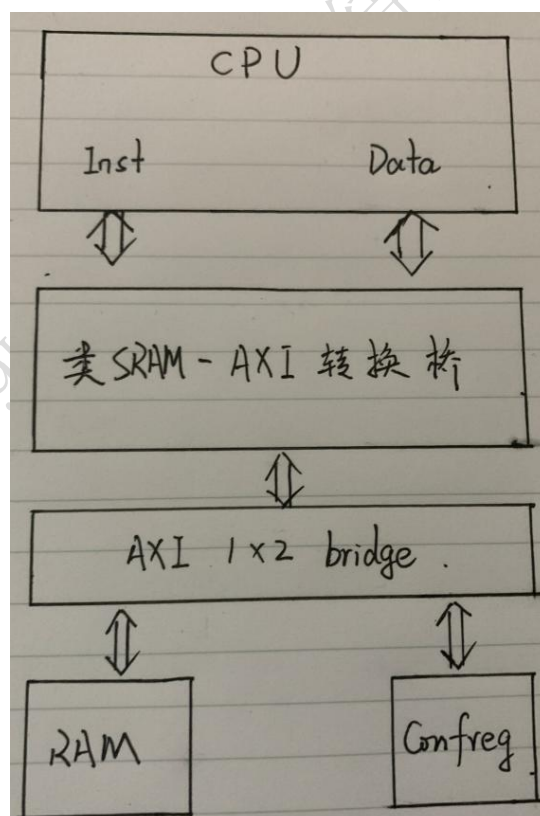 CPU
Inst Data
类SRAM-AXI 转换桥
AXI 1×2 bridge.
RAM Confreg